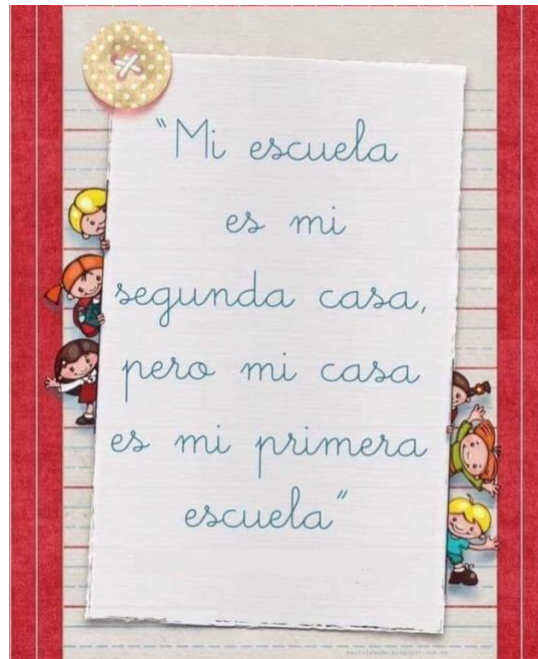 “Mi escuela
es mi
segunda casa,
pero mi casa
es mi primera
escuela”